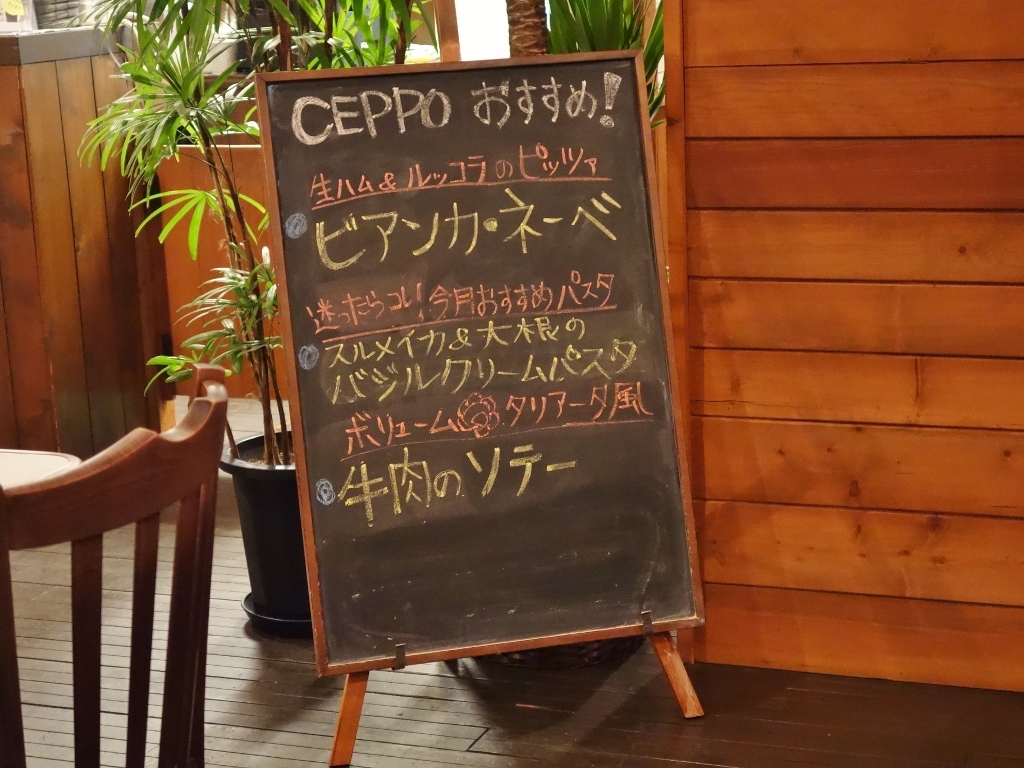 CEPPO おすすめ!
生ハム&ルッコラのピッツァ
ビアンカ・ネーベ
迷ったらコレ!今月おすすめパスタ
スルメイカ&大根の
バジルクリームパスタ
ボリューム タリアータ風
牛肉のソテー